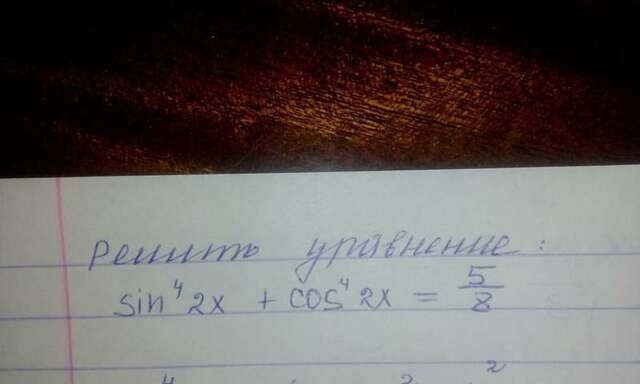 решить уравнение:
sin⁴ 2x + cos⁴ 2x = 5/8